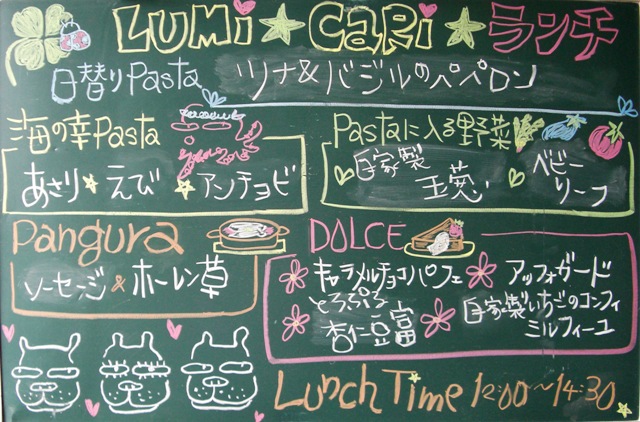 LUMi★CaRi★ランチ
日替りPasta ツナ&バジルのペペロン
海の幸Pasta
あさり★えび★アンチョビ
Pastaに入る野菜
自家製玉葱 ベビーリーフ
Pangura
ソーセージ&ホーレン草
DOLCE
キャラメルチョコパフェ アッフォガード
とろぷる杏仁豆富 自家製いちごのコンフィ
ミルフィーユ
Lunch Time 12:00〜14:30